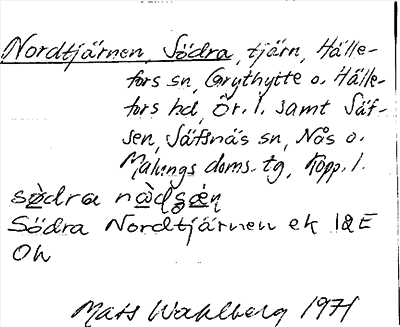 Nordtjärnen, Södra, tjärn, Hälle-
fors sn, Grythytte o. Hälle-
fors hd, Ör. l. samt Säf-
sen, Säfsnäs sn, Nås o.
Malungs doms. tg, Kopp. l.
sø̀dra nàḍʂǽn̥
Södra Nordtjärnen ek 12E
Oh
Mats Wahlberg 1971